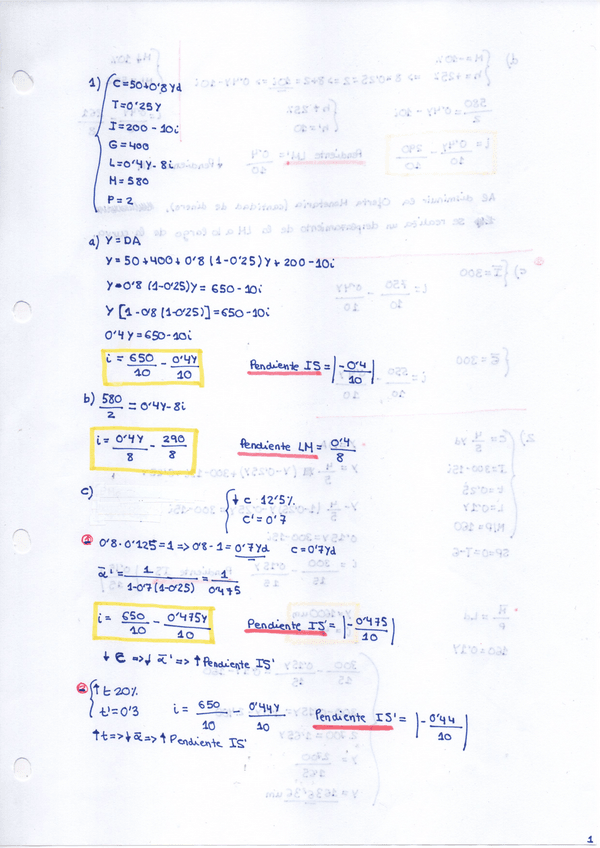 1) C=50+0'8Yd
T=0'25Y
I=200-10i
G=400
L=0'4Y-8i
M=580
P=2
a) Y=DA
Y=50+400+0'8(1-0'25)Y+200-10i
Y-0'8(1-0'25)Y=650-10i
Y[1-0'8(1-0'25)]=650-10i
0'4Y=650-10i
i=650/10-0'4Y/10 Pendiente IS=|-0'4/10|
b) 580/2=0'4Y-8i
i=0'4Y/8-290/8 Pendiente LM=0'4/8
c) ↓c 12'5%
C'=0'7
1 0'8·0'125=1=>0'8-1=0'7Yd C=0'7Yd
ᾱ'=1/1-0'7(1-0'25)=1/0'475
i=650/10-0'475Y/10 Pendiente IS'=|-0'475/10|
↓c=>↓ᾱ'=>↑Pendiente IS'
2 ↑t 20%
t'=0'3 i=650/10-0'44Y/10 Pendiente IS'=|-0'44/10|
↑t=>↓ᾱ=>↑Pendiente IS'
1